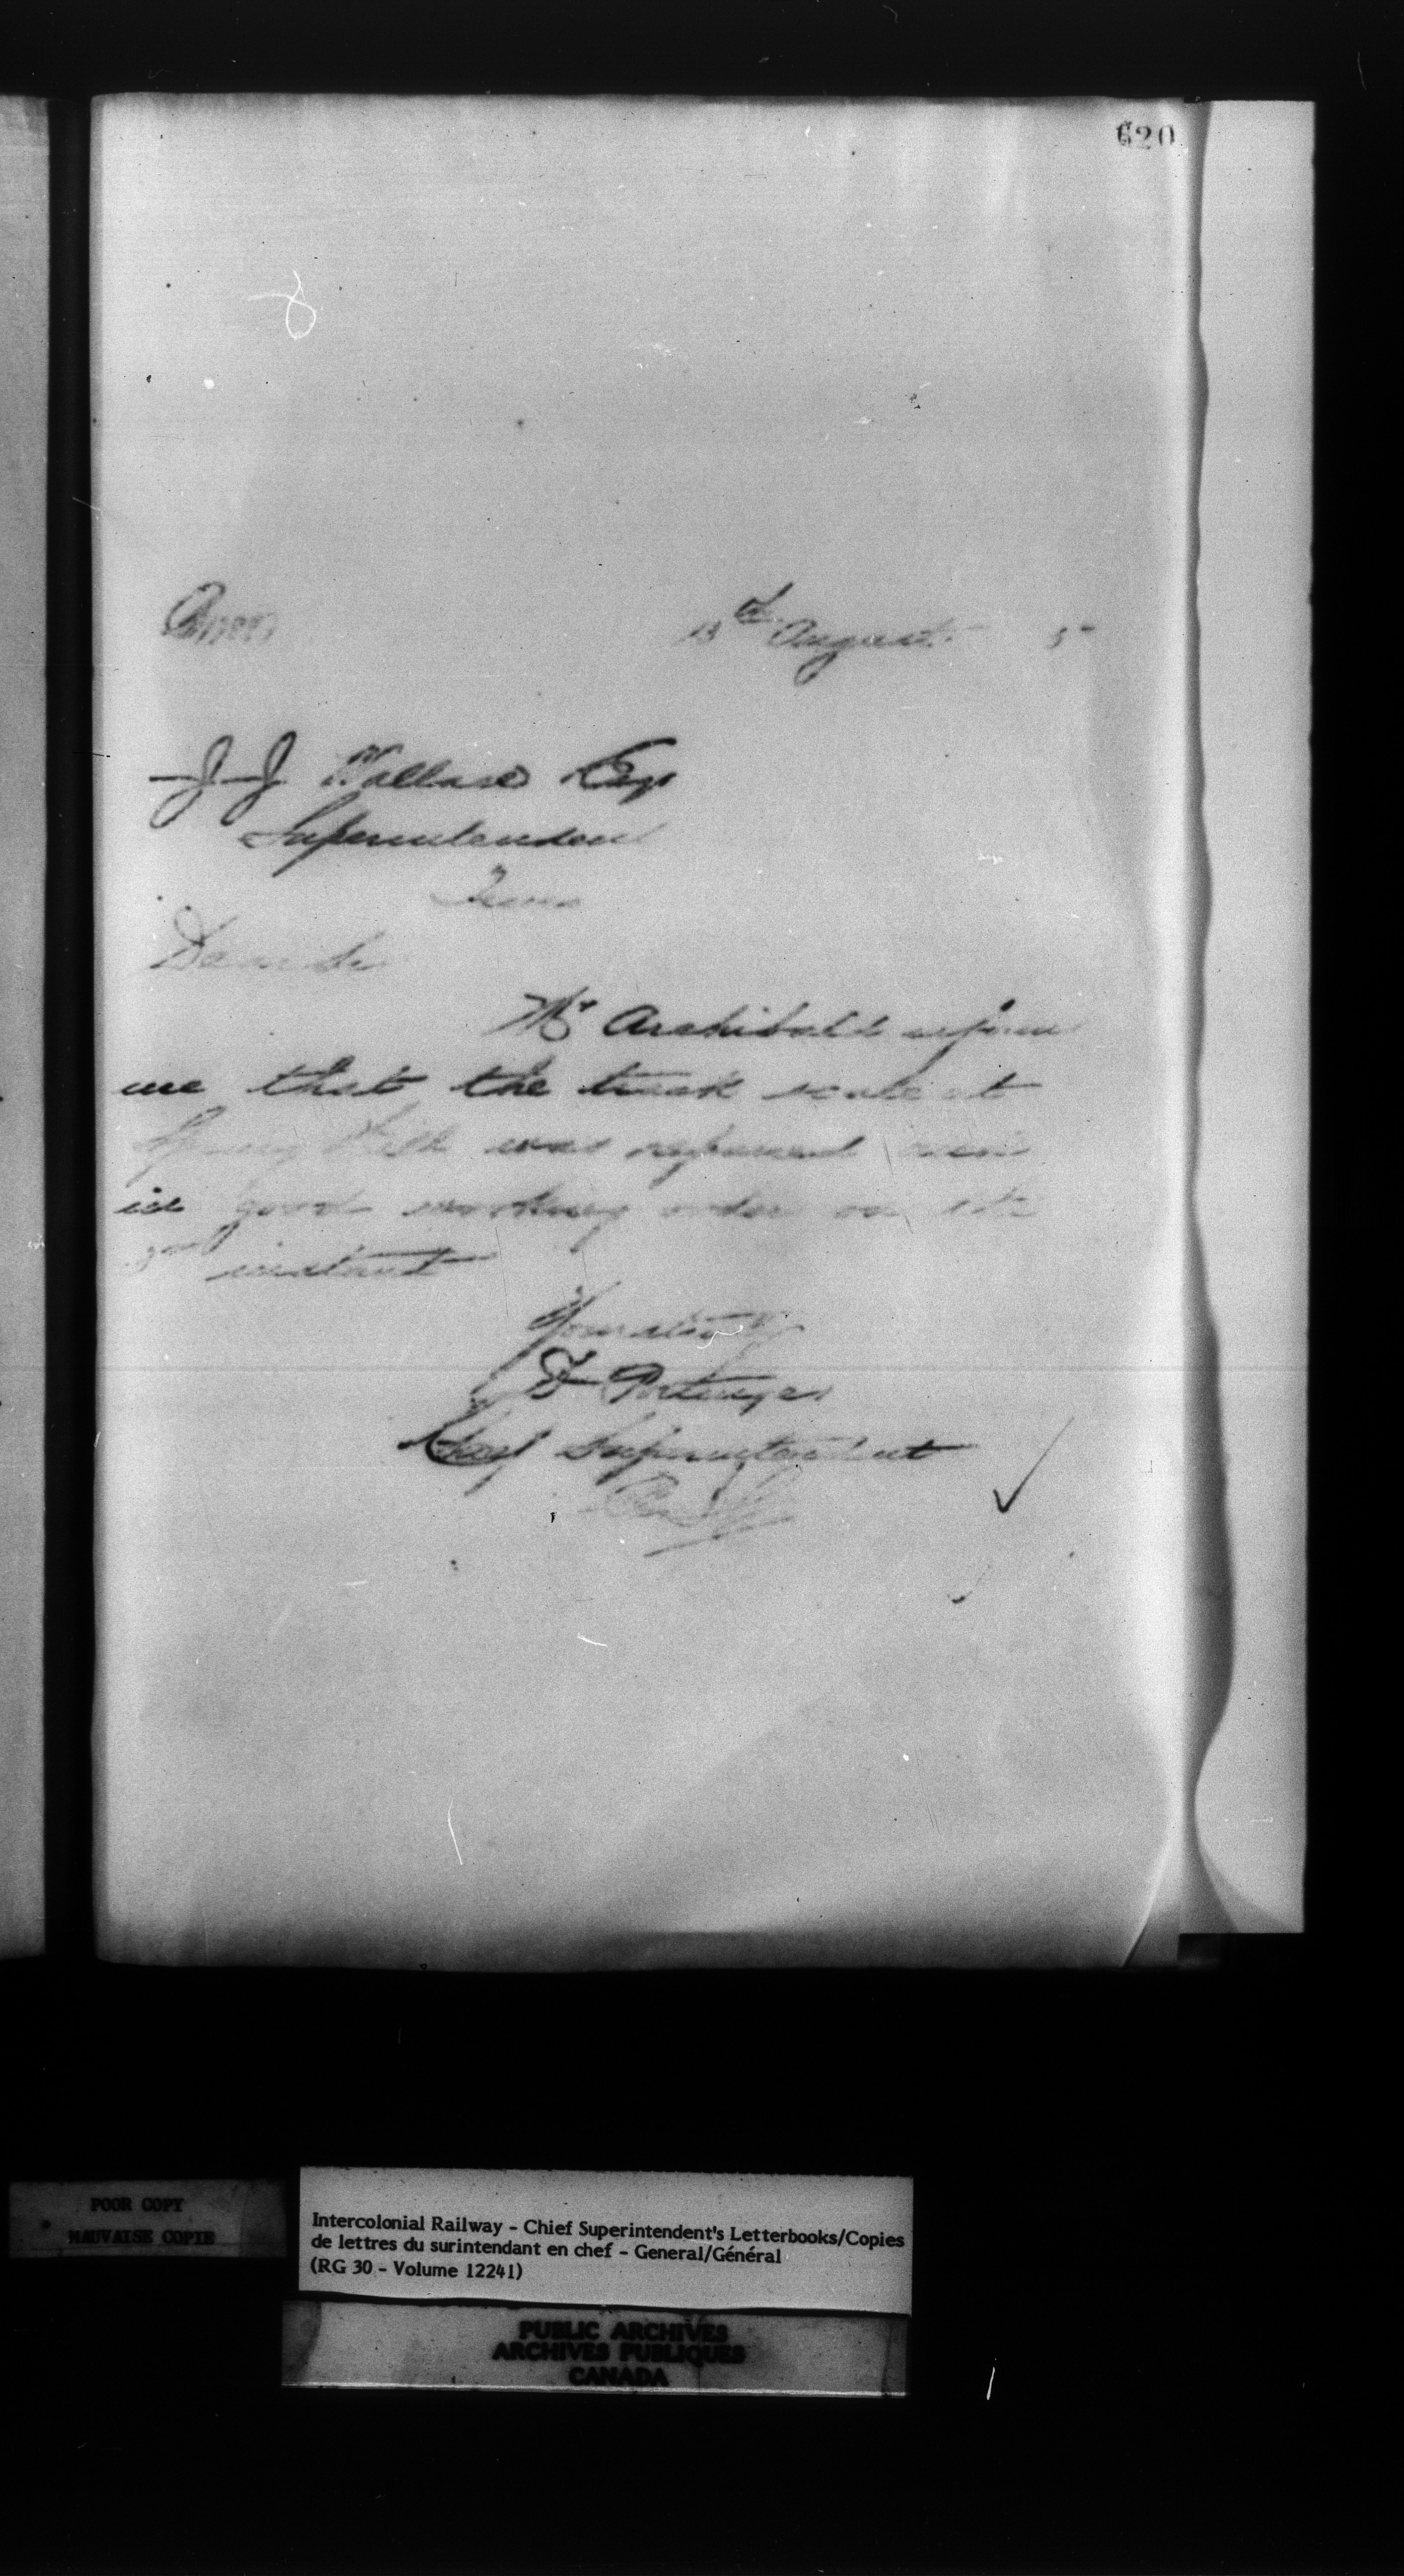 620
13th August 5
J J Wallace Esq
Superintendent
Dear Sir
Mr Archibald informs
me that the track scale at
Spring Hill was repaired and
in good working order on the
instant
Yours truly
D Pottinger
Chief Superintendent
POOR COPY
MAUVAISE COPIE
Intercolonial Railway - Chief Superintendent's Letterbooks/Copies
de lettres du surintendant en chef - General/Général
(RG 30 - Volume 12241)
PUBLIC ARCHIVES
ARCHIVES PUBLIQUES
CANADA